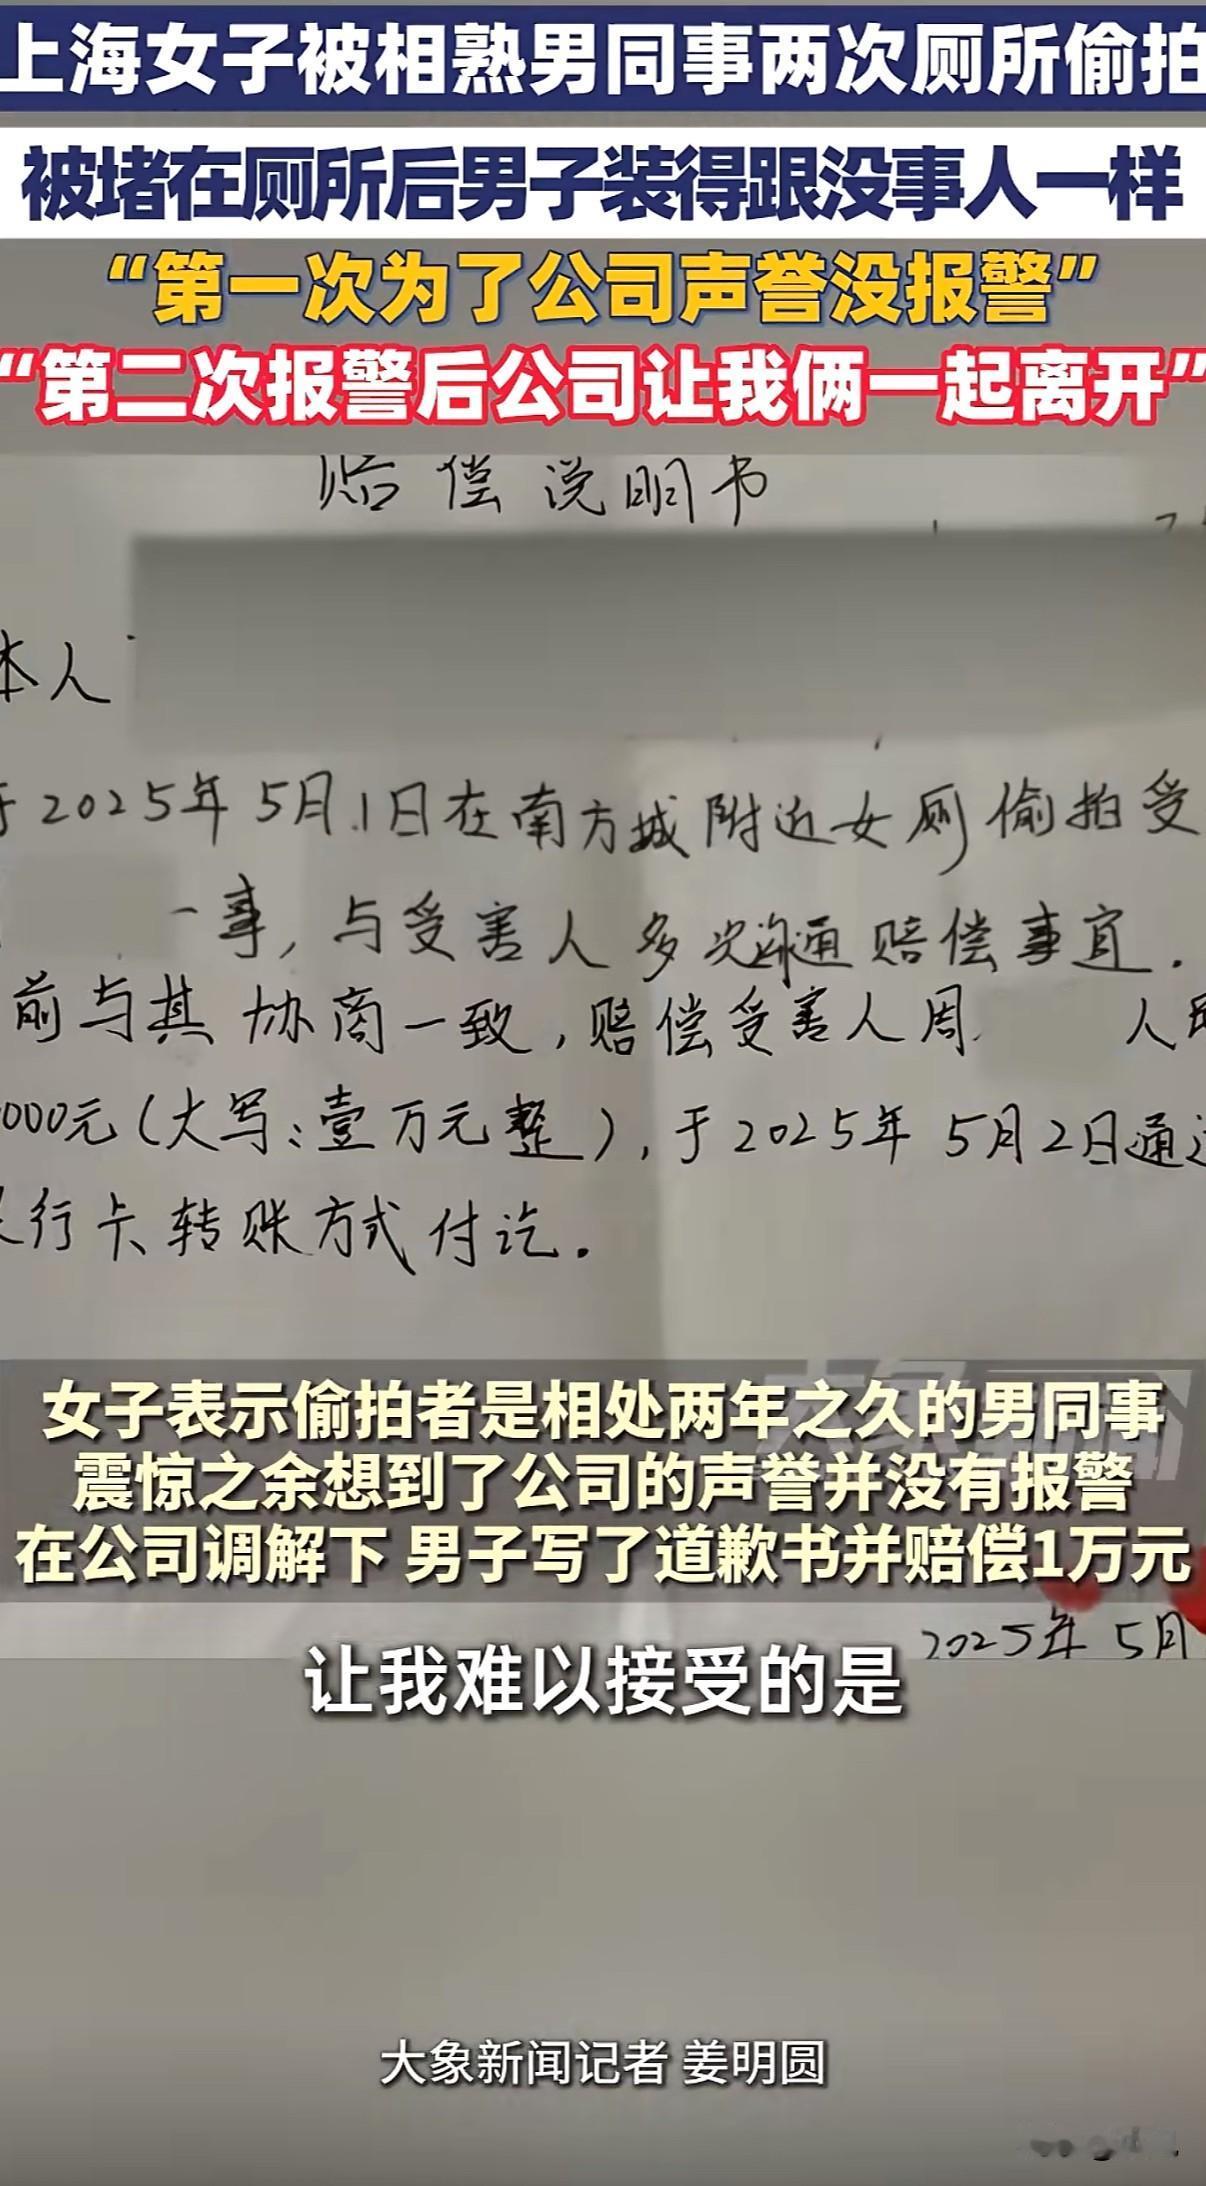 上海女子被相熟男同事两次厕所偷拍
被堵在厕所后男子装得跟没事人一样
“第一次为了公司声誉没报警”
“第二次报警后公司让我俩一起离开”
赔偿说明书
本人
于2025年5月1日在南方城附近女厕偷拍受
一事，与受害人多次沟通赔偿事宜.
前与其协商一致，赔偿受害人周 人民
000元(大写:壹万元整),于2025年5月2日通过
银行卡转账方式付讫.
大象新闻
女子表示偷拍者是相处两年之久的男同事
震惊之余想到了公司的声誉并没有报警
在公司调解下 男子写了道歉书并赔偿1万元
2025年5月
让我难以接受的是
大象新闻记者 姜明圆